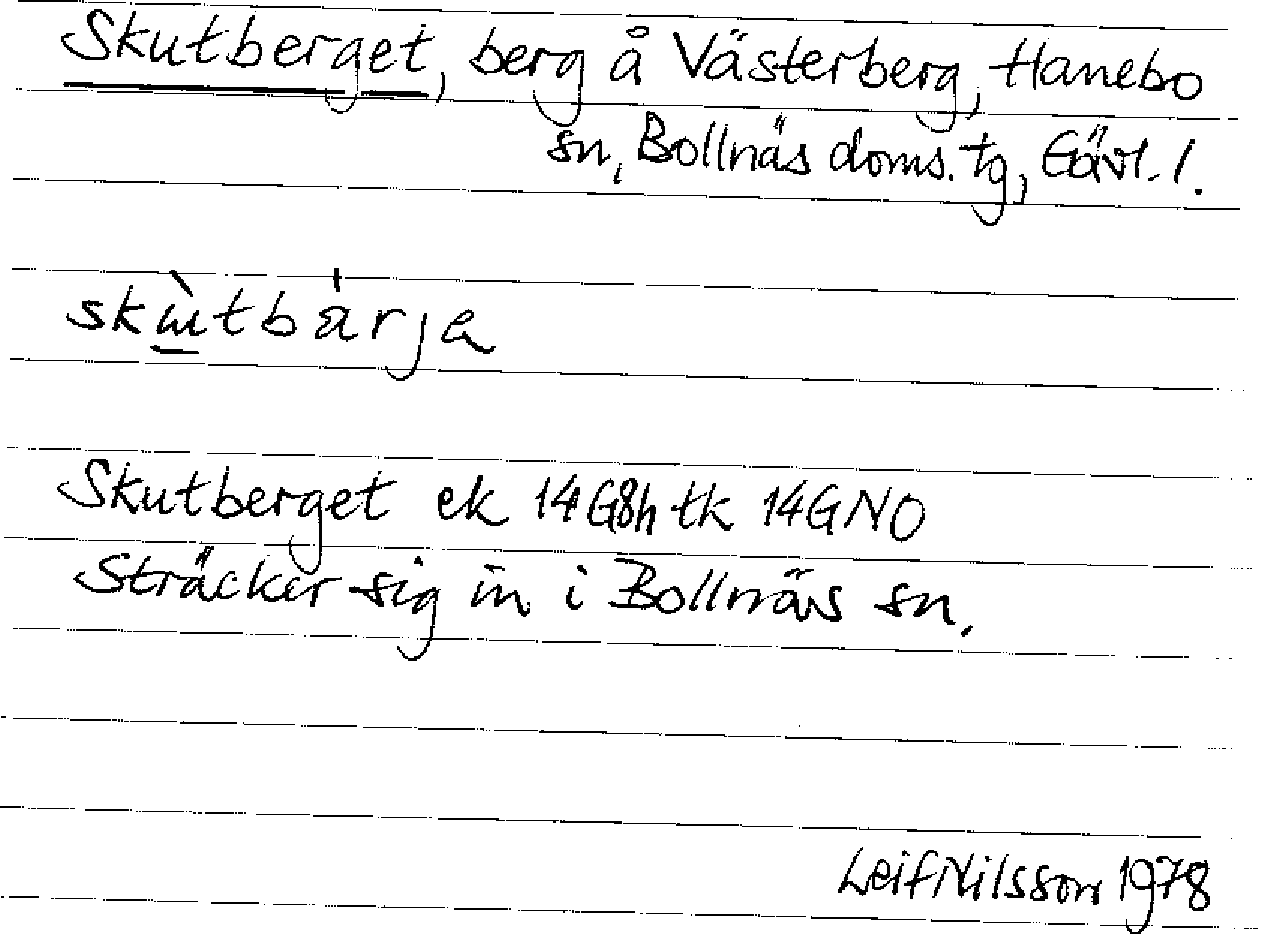 Skutberget, berg å Västerberg, Hanebo
sn, Bollnäs doms. tg, Gävl. l.
Skutberget ek 14G8h tk 14GNO
Sträcker sig in i Bollnäs sn.
Leif Nilsson 1978